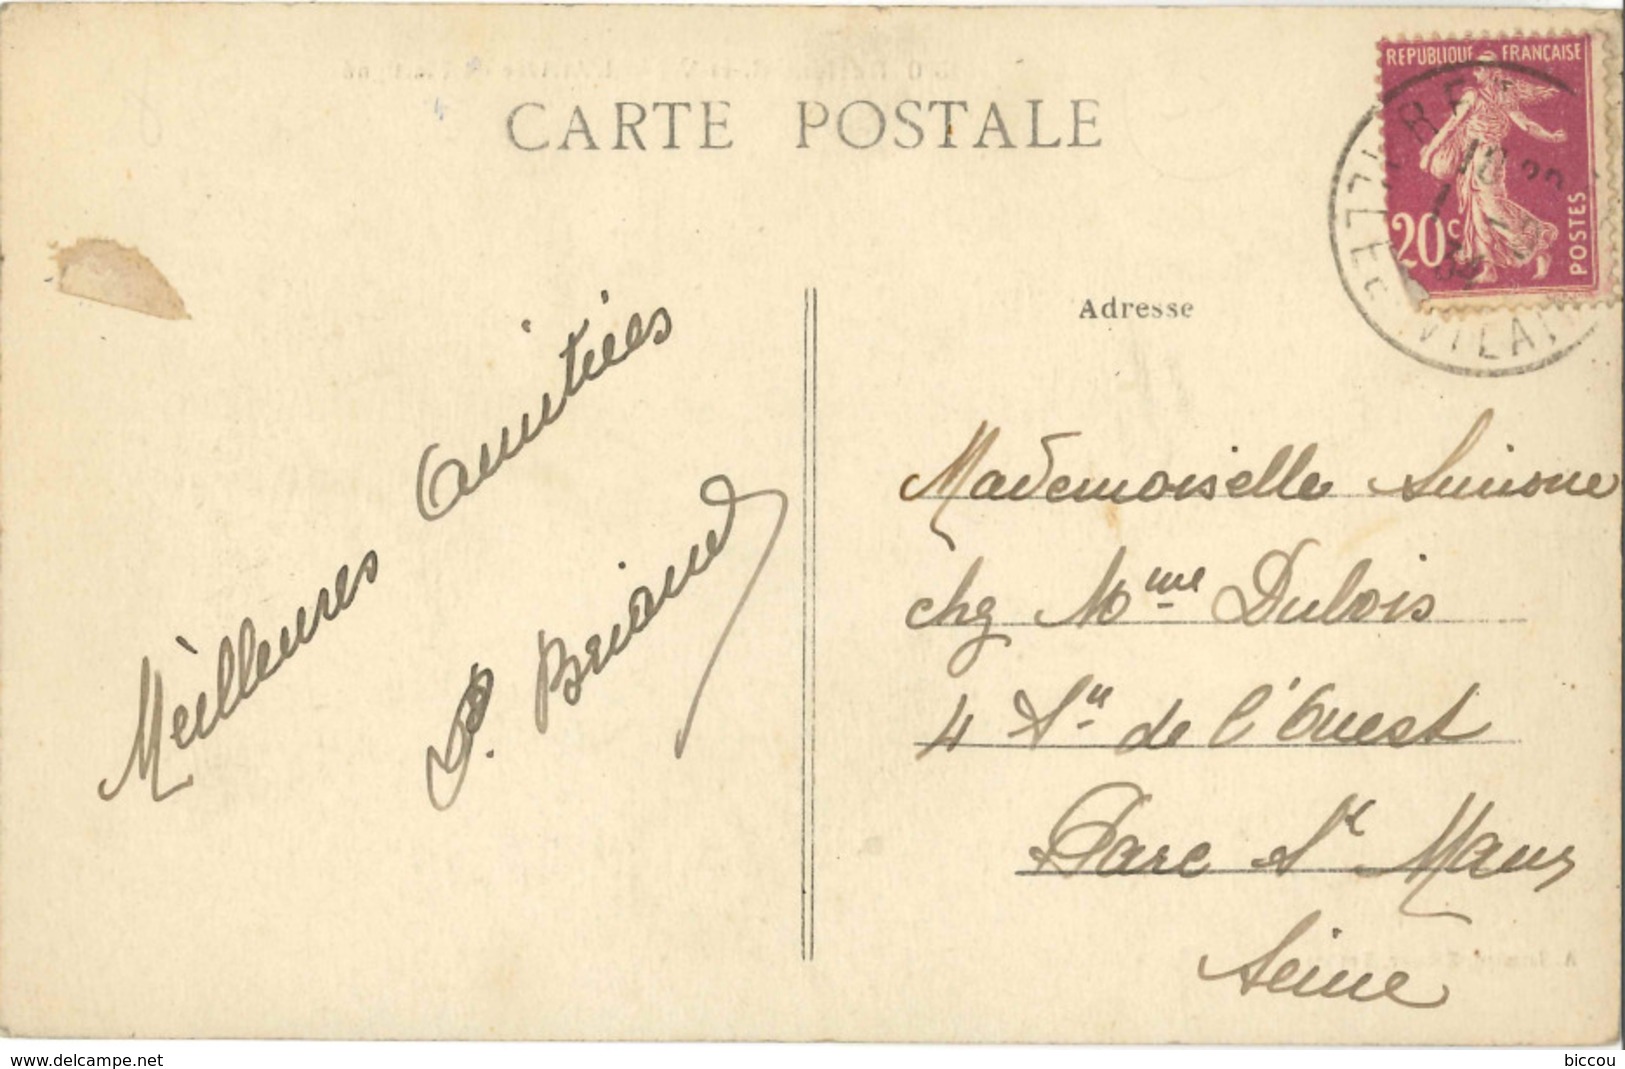 CARTE POSTALE
REPUBLIQUE FRANÇAISE
20c
POSTES
Adresse
Meilleures amitiées
P. Briand
Mademoiselle Simone
chez Mme Dubois
4 de l'Ouest
Parc St Maur
Seine
www.delcampe.net
biccou